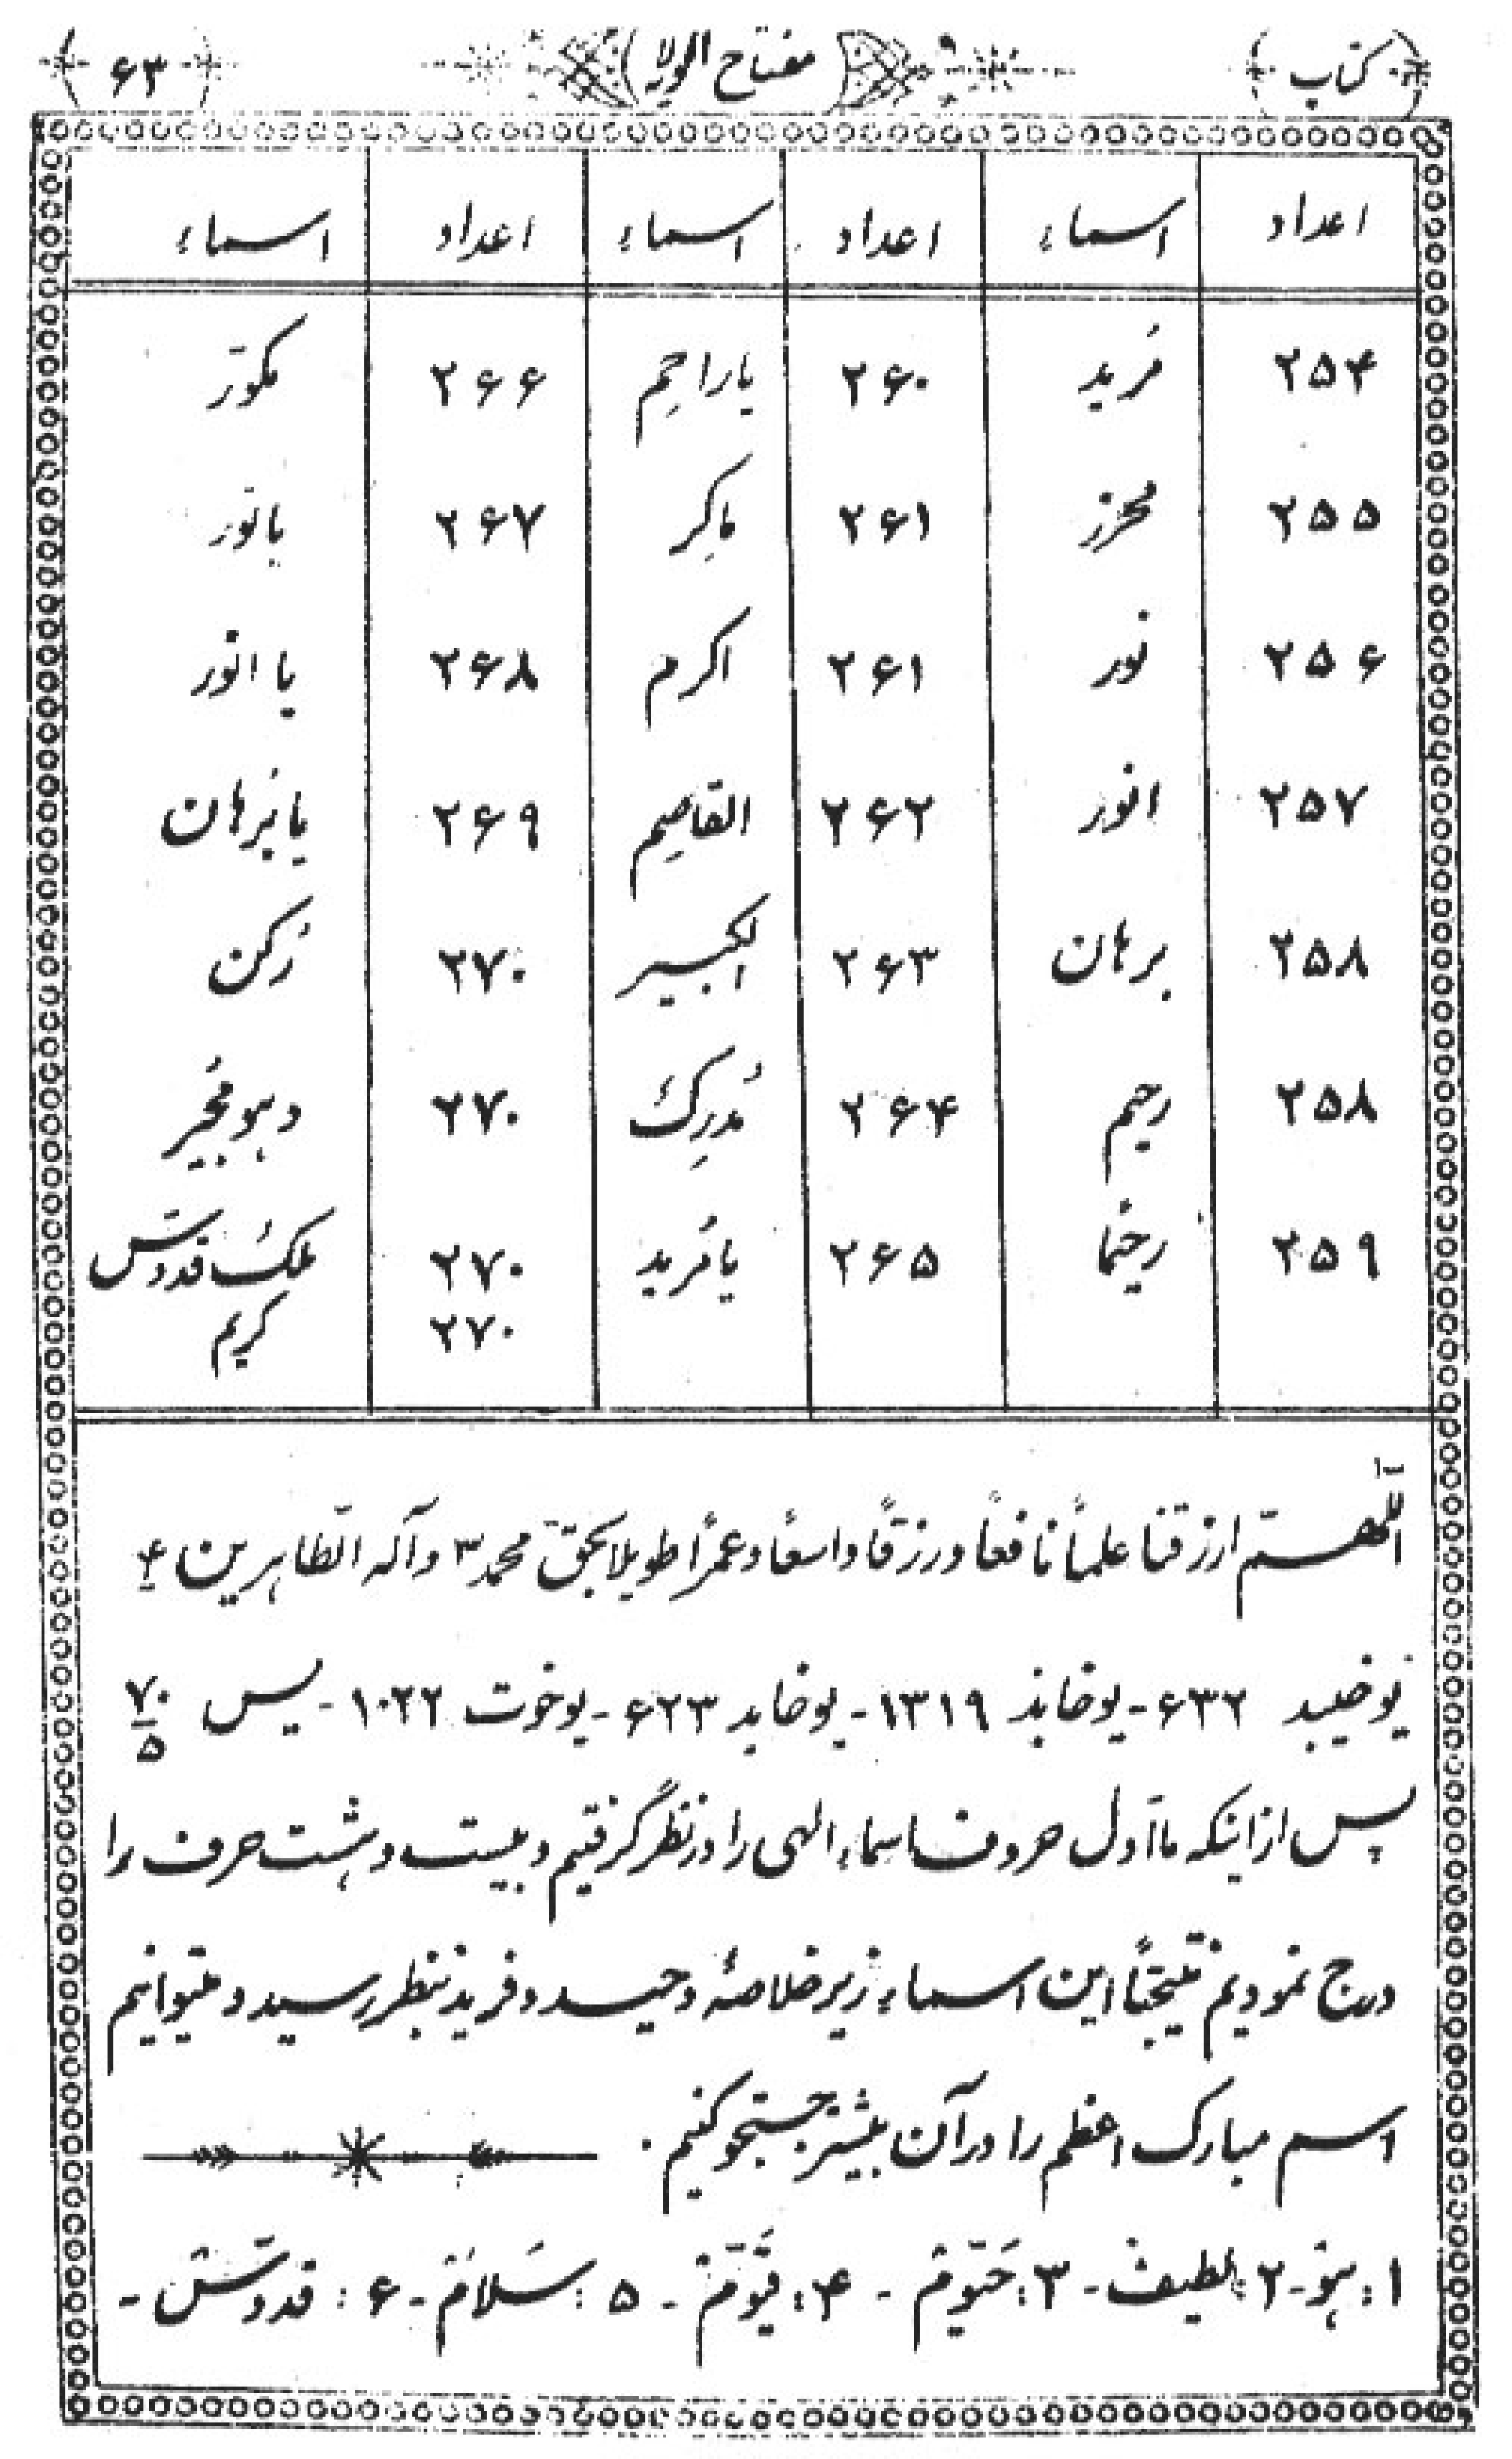 کتاب مفتاح الولا ۶۳
اعداد اسماء اعداد اسماء اعداد اسماء
۲۵۴ مُرید ۲۶۰ یا راحِم ۲۶۶ مکوّر
۲۵۵ محرز ۲۶۱ ماکِر ۲۶۷ یا نور
۲۵۶ نور ۲۶۱ اکرم ۲۶۸ یا انور
۲۵۷ انور ۲۶۲ القاصِم ۲۶۹ یا بُرهان
۲۵۸ برهان ۲۶۳ الکبیر ۲۷۰ رُکن
۲۵۸ رحیم ۲۶۴ مُدرِکُ ۲۷۰ وهو مُجیر
۲۵۹ رحیما ۲۶۵ یا مُرید ۲۷۰ ملکُ قدّوس
۲۷۰ کریم
اللّهمّ ارزقنا علماً نافعاً ورزقاً واسعاً وعمرًا طویلا بحقّ محمد ۳ وآله الطّاهرین ۴
یوخیبد ۶۳۲ - یوخابذ ۱۳۱۹ - یوخابد ۶۲۳ - یوخوت ۱۰۲۲ - یس ۷۰/۵
پس از اینکه ما اوّل حروف اسماء الهی را در نظر گرفتیم و بیست و هشت حرف را
درج نمودیم نتیجتاً این اسماء زیر خلاصهٔ وحید و فرید بنظر رسید و میتوانیم
اسم مبارک اعظم را در آن بیشتر جستجو کنیم .
۱ : هوُ - ۲ : لطیف - ۳ : حَیّومُ - ۴ : قیّومُ - ۵ : سَلامُ - ۶ : قدّوسُ -